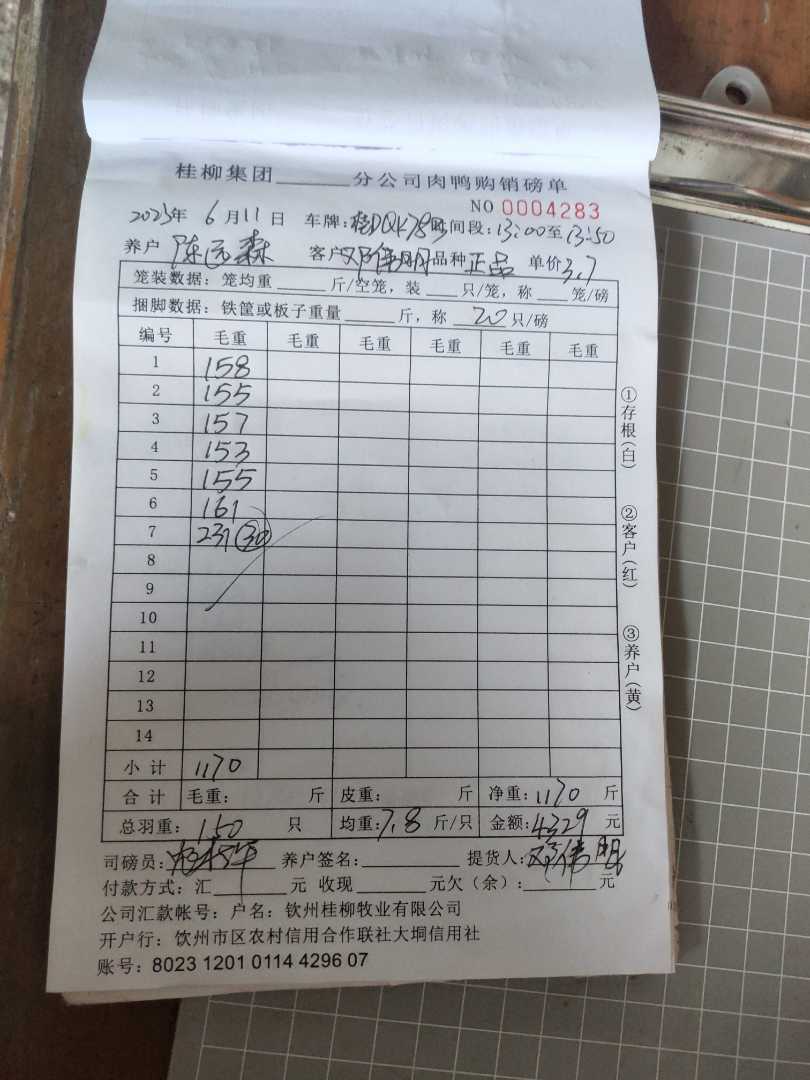 桂柳集团______分公司肉鸭购销磅单
NO 0004283
2023年 6月11日 车牌:桂DQK78 时间段:13:00至13:50
养户 陈远森 客户 邓伟明 品种 正品 单价3.7
笼装数据：笼均重______斤/空笼，装____只/笼，称____笼/磅
捆脚数据：铁筐或板子重量______斤，称 20 只/磅
编号 毛重 毛重 毛重 毛重 毛重 毛重
1 158
2 155
3 157
4 153
5 155
6 161
7 231 30
8
9
10
11
12
13
14
小计 1170
合计 毛重： 斤 皮重： 斤 净重：1170 斤
总羽重：150 只 均重：7.8 斤/只 金额：4329 元
司磅员： 养户签名：________ 提货人：邓伟明
付款方式：汇______元 收现______元欠（余）：______元
公司汇款帐号：户名：钦州桂柳牧业有限公司
开户行：饮州市区农村信用合作联社大垌信用社
账号：8023 1201 0114 4296 07
①存根(白)
②客户(红)
③养户(黄)